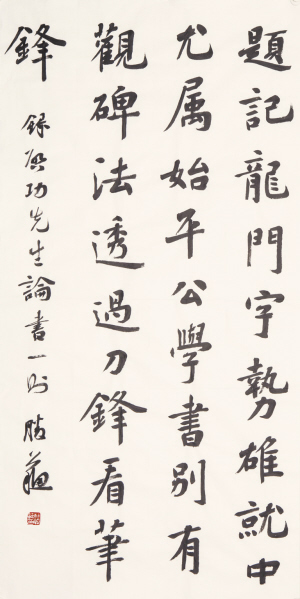 題記龍門字勢雄就中
尤属始平公學書別有
觀碑法透過刀鋒看筆
鋒
錄啓功先生論書一則 勝蘊